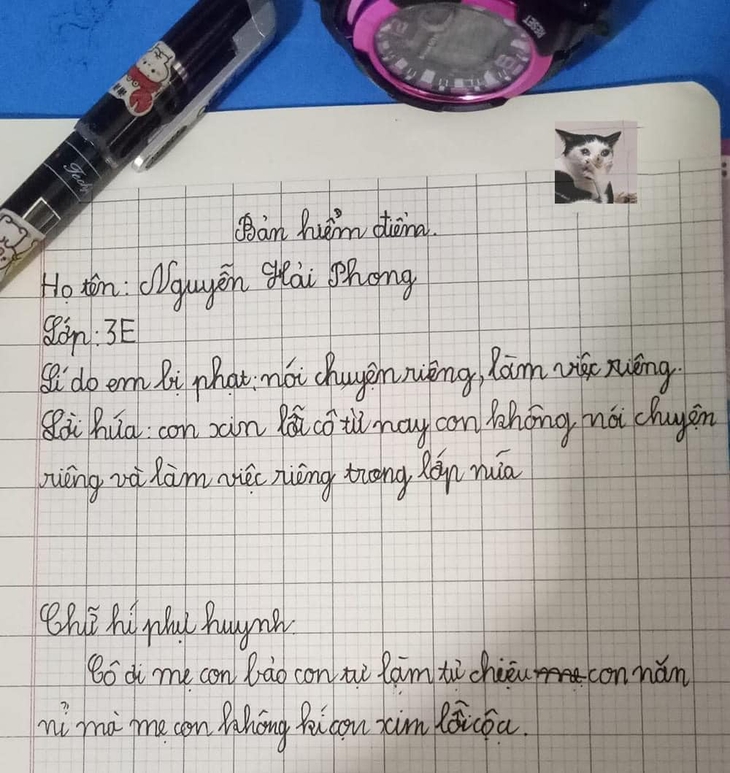 RESET
Bản hiểm điểm.
Họ tên: Nguyễn Hải Phong
Lớp: 3E
Lí do em bị phạt: nói chuyện riêng, làm việc riêng.
Lời hứa: con xin lỗi cô từ nay con không nói chuyện
riêng và làm việc riêng trong lớp nữa
Chữ hí phụ huynh:
Cô ơi mẹ con bảo con tự làm tự chiệu con năn
nỉ mà mẹ con không kí cọn xin lỗi cộạ.